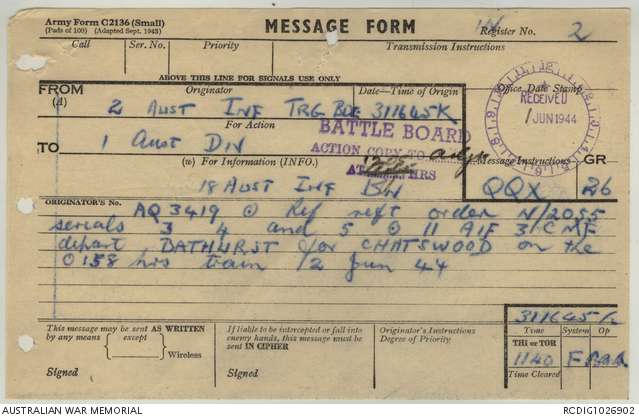 Army Form C2136 (Small)
(Pads of 100) (Adapted Sept. 1943)
MESSAGE FORM
IN
Register No. 2
Call Ser. No. Priority Transmission Instructions
ABOVE THIS LINE FOR SIGNALS USE ONLY
FROM
(A)
Originator
Date—Time of Origin
Office Date Stamp
RECEIVED
1 JUN 1944
2 AUST INF TRG BDE 311645K
For Action
TO
1 AUST DIV
BATTLE BOARD
ACTION COPY TO
AT HRS
(w) For Information (INFO.)
Message Instructions
GR
18 AUST INF BN
QQX
26
ORIGINATOR'S No.
AQ 3419 ⊙ Ref neft order N/2055
serials 3 4 and 5 ⊙ 11 AIF 31 CMF
depart BATHURST for CHATSWOOD on the
0158 hrs train 12 Jun 44
This message may be sent AS WRITTEN
by any means (except
Wireless
Signed
If liable to be intercepted or fall into
enemy hands, this message must be
sent IN CIPHER
Signed
Originator's Instructions
Degree of Priority
311645K
Time System Op
THI or TOR
1140 F
Time Cleared
AUSTRALIAN WAR MEMORIAL
RCDIG1026902